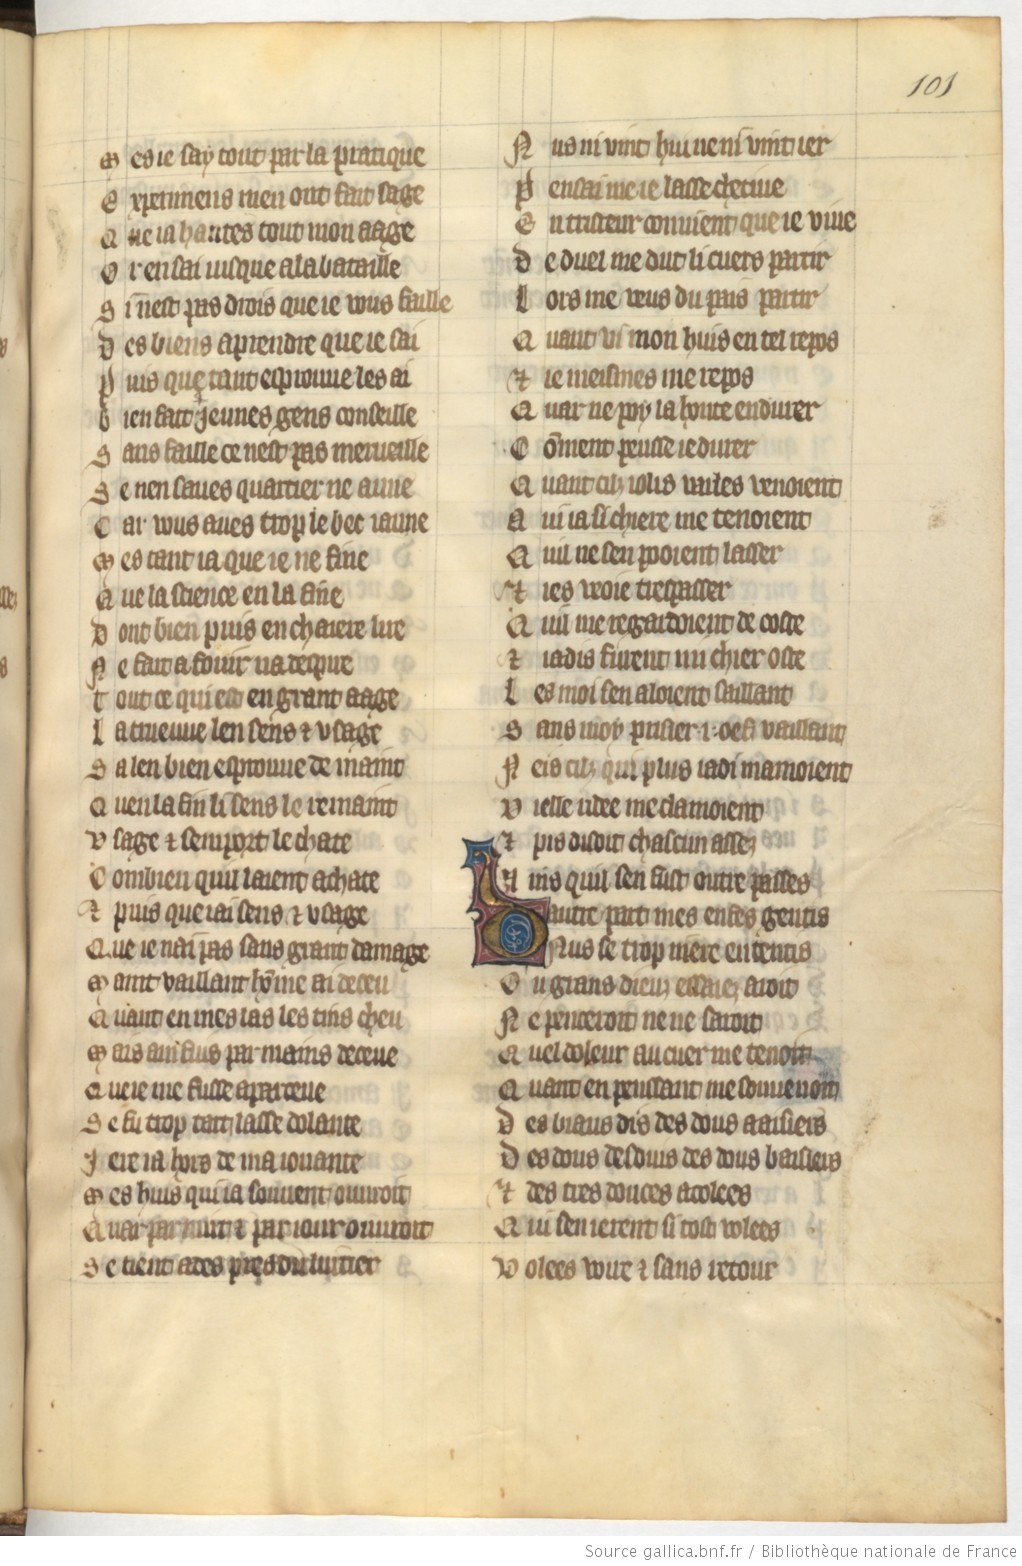 101
M es ie say tout par la pratique
E xperimens men ont fait sage
Q ue ia hantes tout mon aage
O r en sai iusque a la bataille
S i nest pas drois que ie vous faille
D es biens aprendre que ie sai
P uis que tant esprouue les ai
b ien fait jeunes gens conseille
S ans faille ce nest pas merueille
S e nen saues quartier ne aune
C ar vous aues trop le bec iaune
M es tant ia que ie ne fine
Q ue la science en la fine
D ont bien puis en chaiere lire
N e fait a fouir na despire
t out ce qui est en grant aage
l a trueuue len sens ⁊ vsage
S a len bien esprouue de maint
Q uen la fin li sens le remaint
V sage ⁊ semport le chate
C ombien quil laient achate
⁊ puis que iai sens ⁊ vsage
Q ue ie nai pas sans grant damage
M aint vaillant hōme ai deceu
Q uant en mes las les tins cheu
M ais ain fuis par mains deceue
Q ue ie me fusse aparceue
S e fu trop tart lasse dolante
J ere ia hors de ma iouante
M es huis qui ia souuent ouuroit
Q uar par nuit ⁊ par iour ouuroit
S e tient ades pres du luitier
N us ni vint hui ne ni vint ier
P ensai me ie lasse chetiue
E n tristeur conuient que ie viue
D e duel me dut li cuers partir
l ors me veus du pais partir
Q uant vi mon huis en tel repos
⁊ ie meismes me repos
Q uar ne poy la honte endurer
C ōment peusse ie durer
Q uant cilz iolis vailes venoient
Q ui ia si chiere me tenoient
Q uil ne sen pooient lasser
⁊ ies veoie trespasser
Q uil me regardoient de coste
⁊ iadis furent mi chier oste
l es moi sen aloient saillant
S ans moy prisier .i. oef vaillant
N eis cilz qui plus iadi mamoient
V ielle ridee me clamoient
⁊ pis disoit chascun assez
A ins quil sen fust outre passes
D autre part mes enfes gentis
Nus se trop niere ententis
O u grans dieulz essaiez auoit
N e penceroit ne ne sauoit
Q uel doleur au cuer me tenoit
Q uant en penssant me souuenoit
D es biaus dis des dous aaisiers
D es dous desduis des dous baisiers
⁊ des tres douces acolees
Q ui sen ierent si tost volees
V olees voire ⁊ sans retour
Source gallica.bnf.fr / Bibliothèque nationale de France